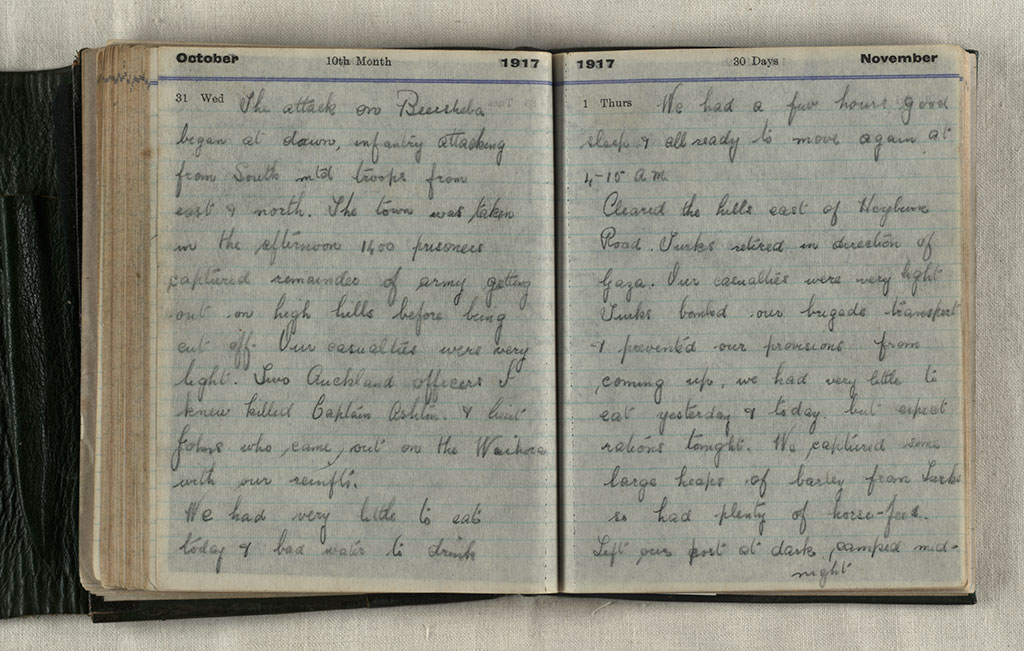 October 10th Month 1917
31 Wed The attack on Beersheba
began at dawn, infantry attacking
from South mtd troops from
east & north. The town was taken
in the afternoon 1400 prisoners
captured remainder of army getting
out on high hills before being
cut off. Our casualties were very
light. Two Auckland officers I
knew killed Captain Ashton. & Lieut
Johns who came out on the Waihora
with our reinfts.
We had very little to eat
today & bad water to drink
1917 30 Days November
1 Thurs We had a few hours good
sleep & all ready to move again at
4-15 a m
Cleared the hills east of
Road. Turks retired in direction of
Gaza. Our casualties were very light
Turks bombed our brigade transport
& prevented our provisions from
coming up, we had very little to
eat yesterday & today but expect
rations tonight. We captured some
large heaps of barley from Turks
so had plenty of horse-feed.
Left our post at dark, camped mid-
night